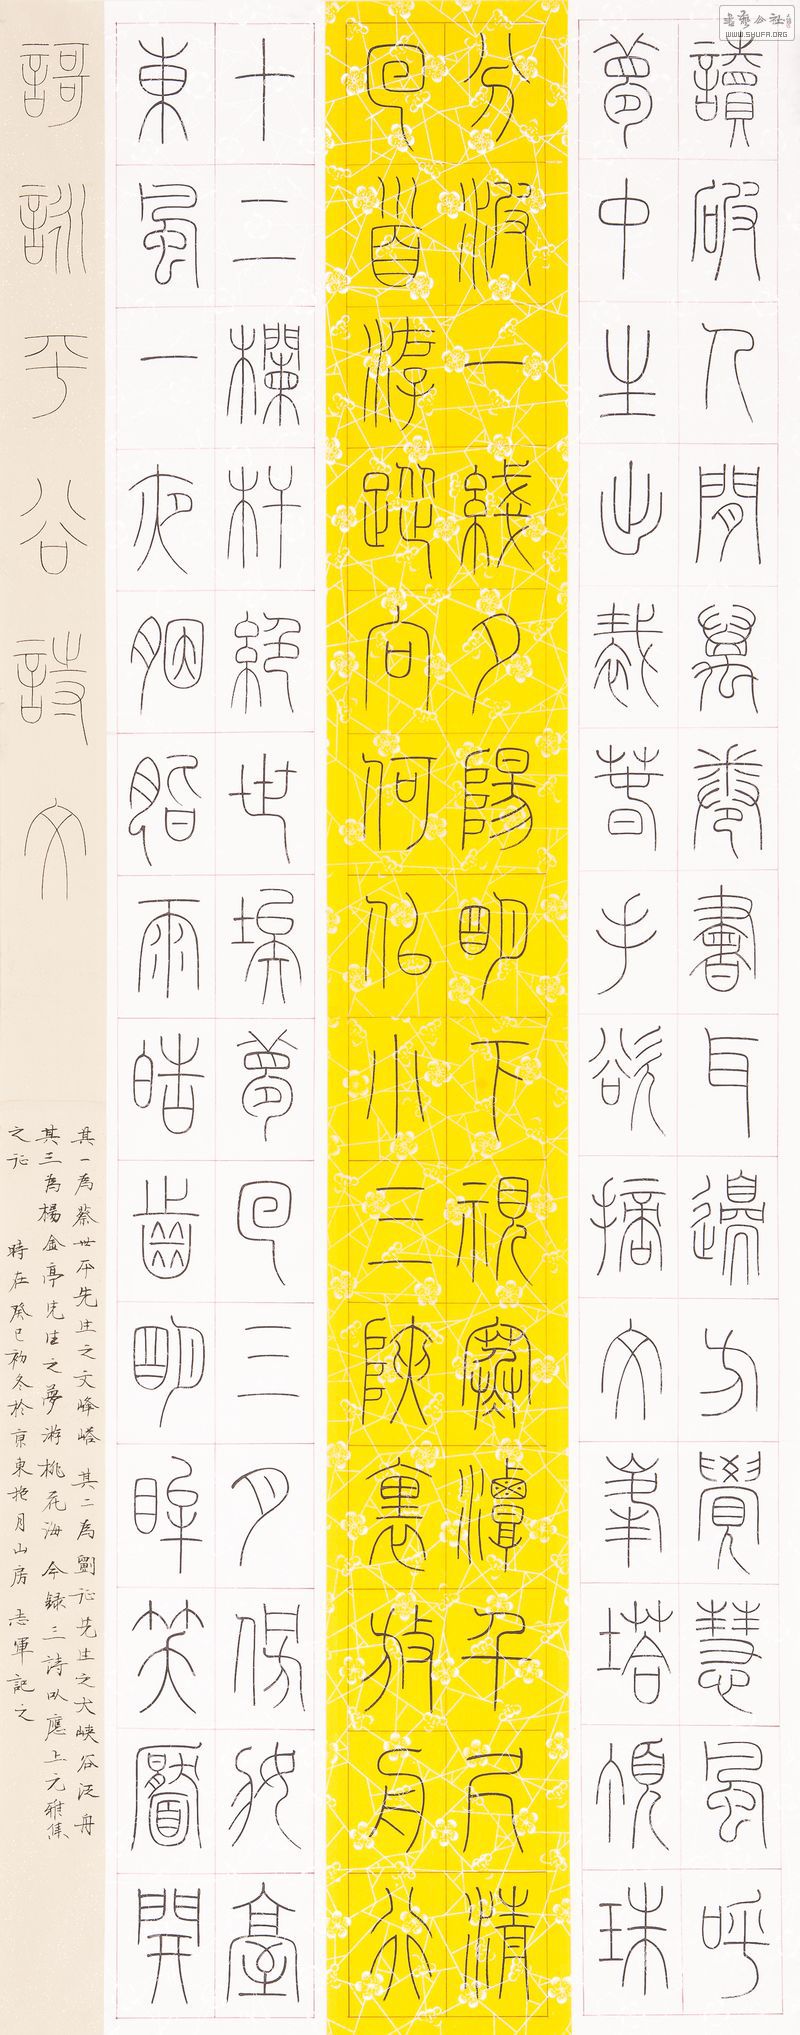 讀破人間萬卷書耳邊方覺慧風呼
夢中生出裁春手欲摘文峯塔頂珠
分波一綫夕陽明下視寒潭千尺清
回首游蹤向何似小三陜裏放舟行
十二欄杆絕世埃夢回三月傍妝臺
東風一夜胭脂雨皓齒明眸笑靨開
謌詠平谷詩文
其一為蔡世平先生之文峰塔 其二為劉征先生之大峽谷泛舟
其三為楊金亭先生之夢游桃花海今録三詩以應上元雅集
之征 時在癸巳初冬於京東抱月山房 志軍記之
書藝公社
WWW.SHUFA.ORG